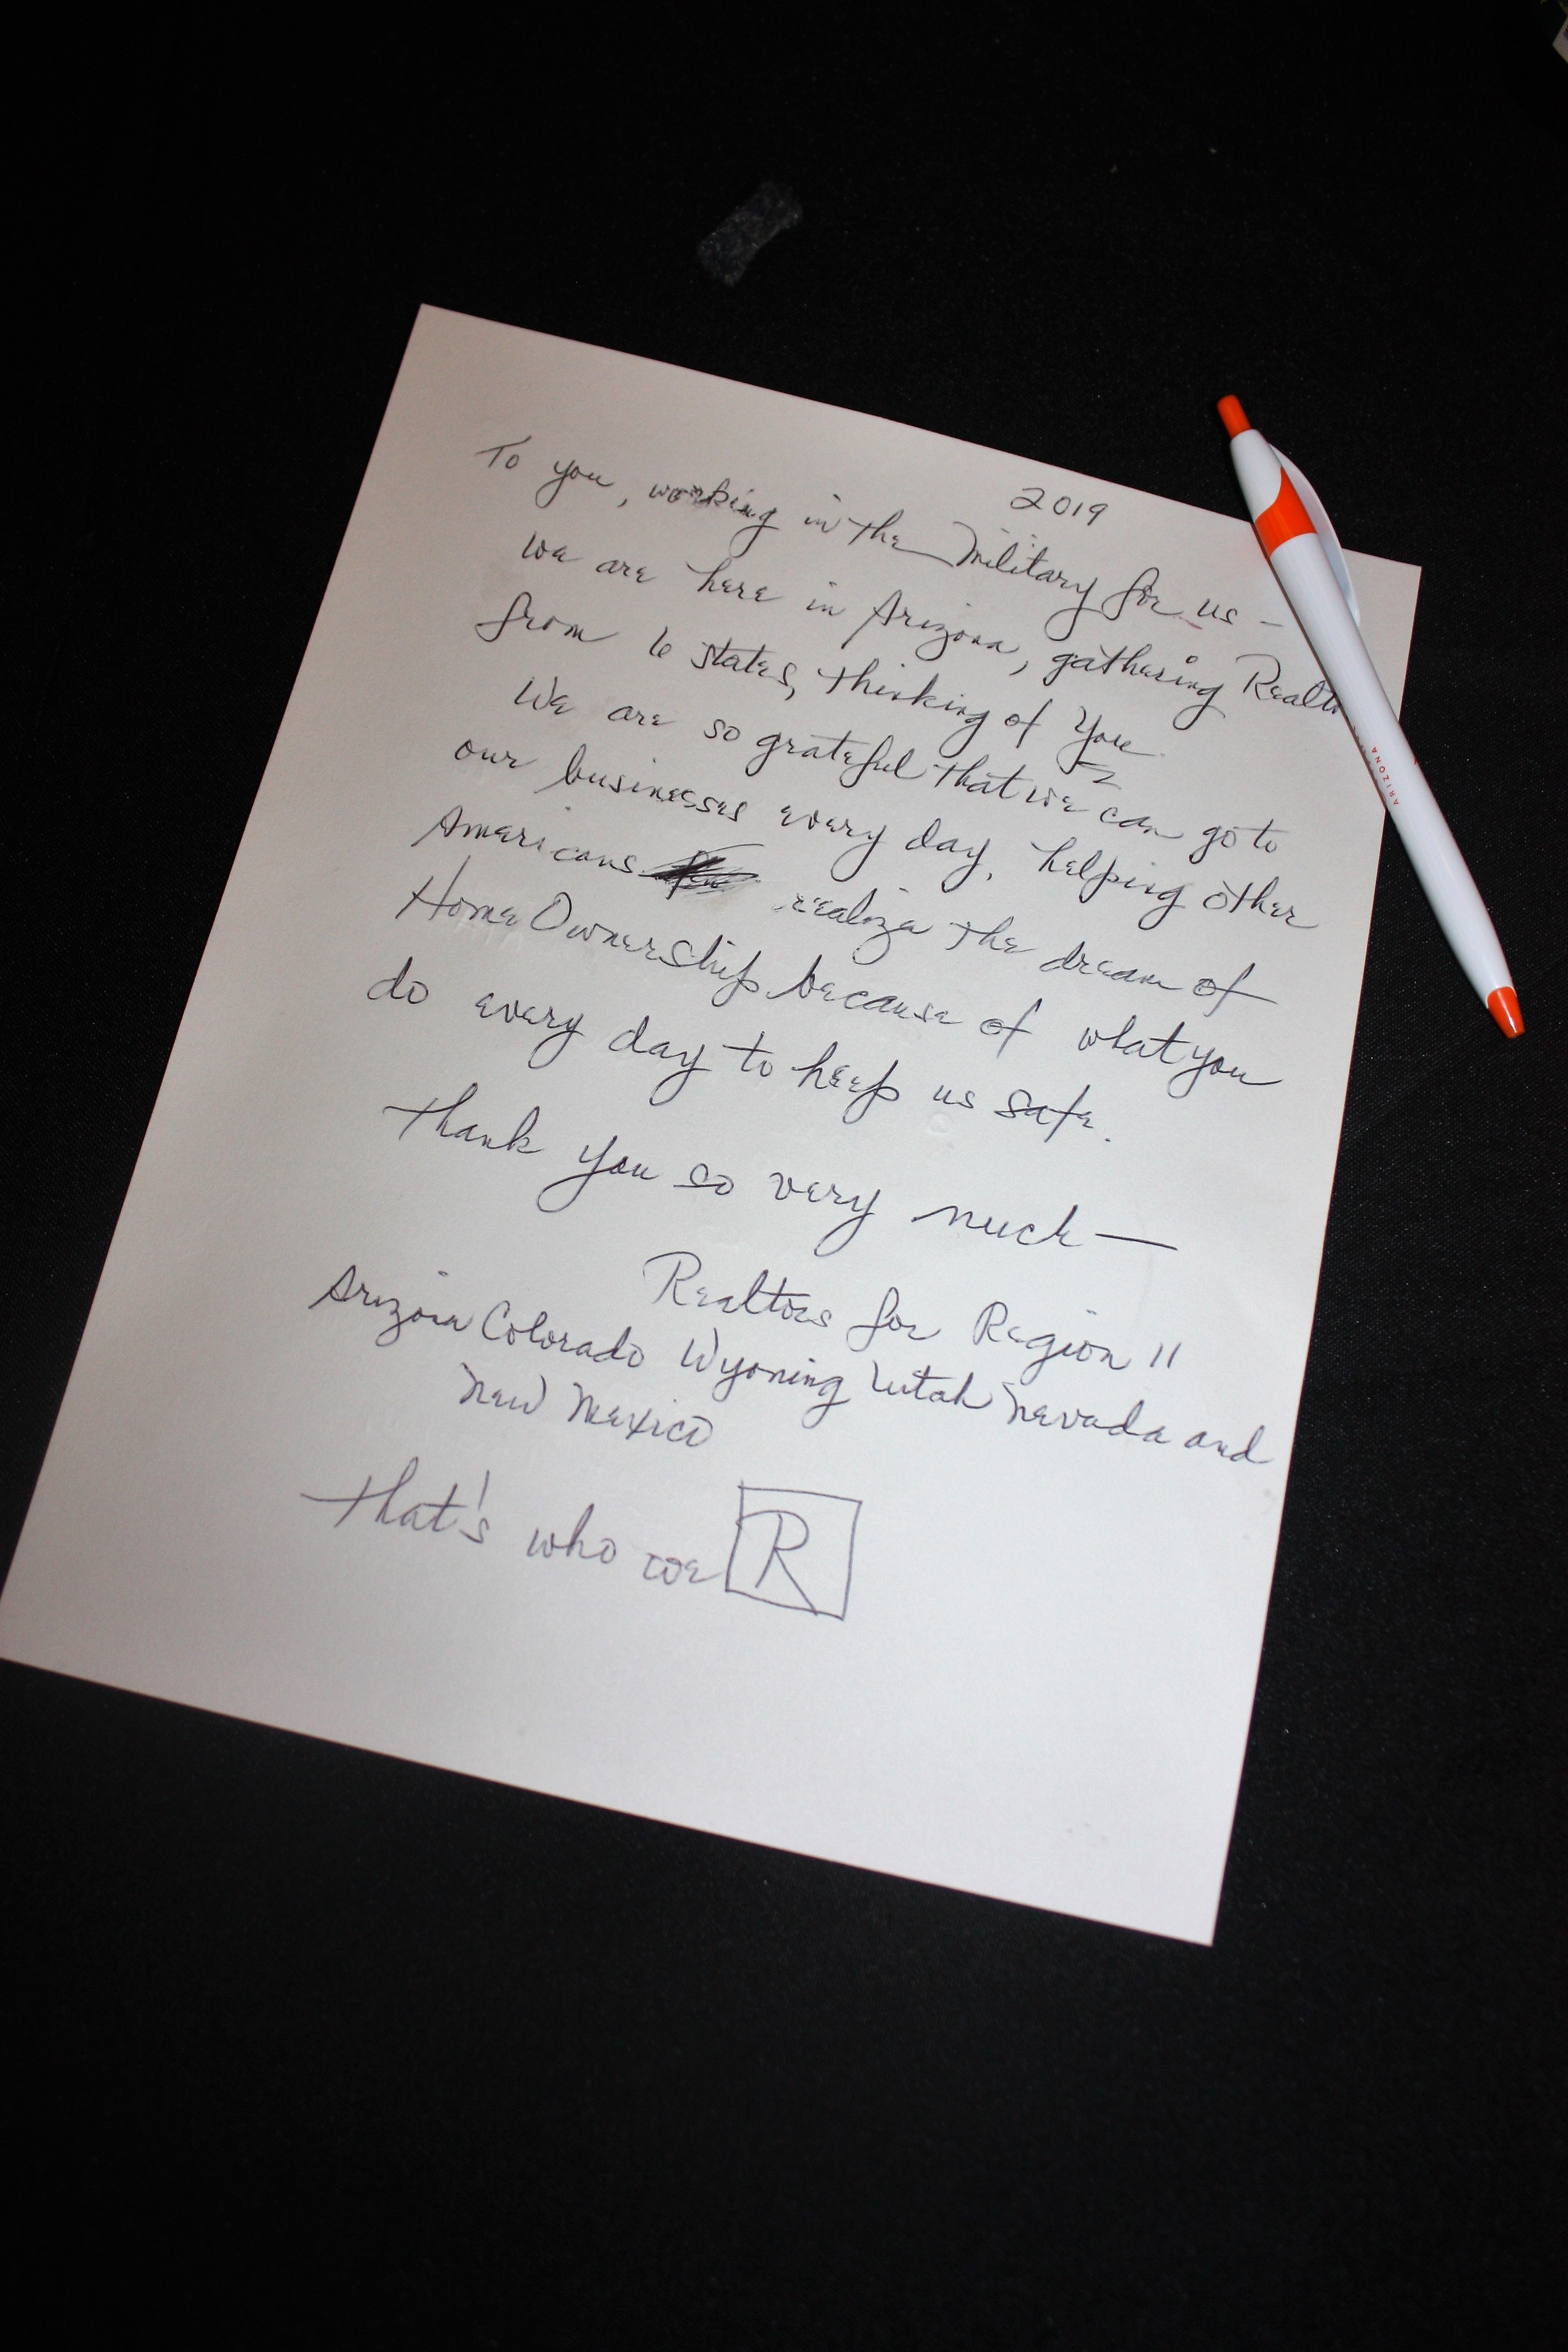 2019
To you, working in the Military for us -
we are here in Arizona, gathering Realt
from 6 states, thinking of You
We are so grateful that we can go to
our businesses every day, helping other
Americans realize the dream of
Home Ownership because of what you
do every day to keep us safe.
Thank you so very much —
Realtors for Region 11
Arizona Colorado Wyoming Utah Nevada and
New Mexico
That's who we R
ARIZONA